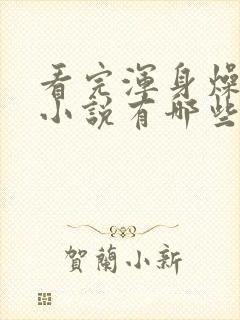 看完渾身燥
小說有哪些
賀蘭小新